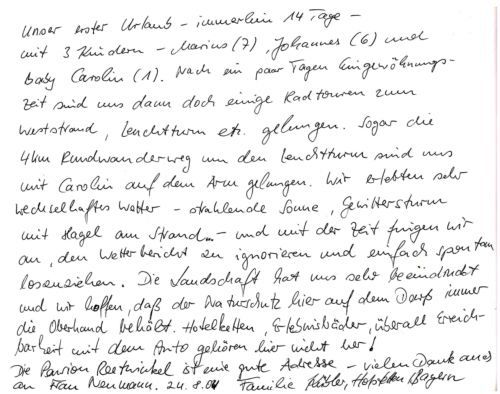 Unser erster Urlaub - immerhin 14 Tage -
mit 3 Kindern - Marius (7), Johannes (6) und
Baby Carolin (1). Nach ein paar Tagen Eingewöhnungs-
zeit sind uns dann doch einige Radtouren zum
Weststrand, Leuchtturm etc. gelungen. Sogar die
4km Rundwanderweg um den Leuchtturm sind uns
mit Carolin auf dem Arm gelungen. Wir erlebten sehr
wechselhaftes Wetter - strahlende Sonne, Gewittersturm
mit Hagel am Strand... - und mit der Zeit fingen wir
an, den Wetterbericht zu ignorieren und einfach spontan
loszuziehen. Die Landschaft hat uns sehr beeindruckt
und wir hoffen, daß der Naturschutz hier auf dem Darß immer
die Oberhand behält. Hotelketten, Erlebnisbäder, überall Erreich-
barkeit mit dem Auto gehören hier nicht her!
Die Pension Reetwinkel ist eine gute Adresse - vielen Dank auch
an Frau Neumann. 24.8.04 Familie Bayern